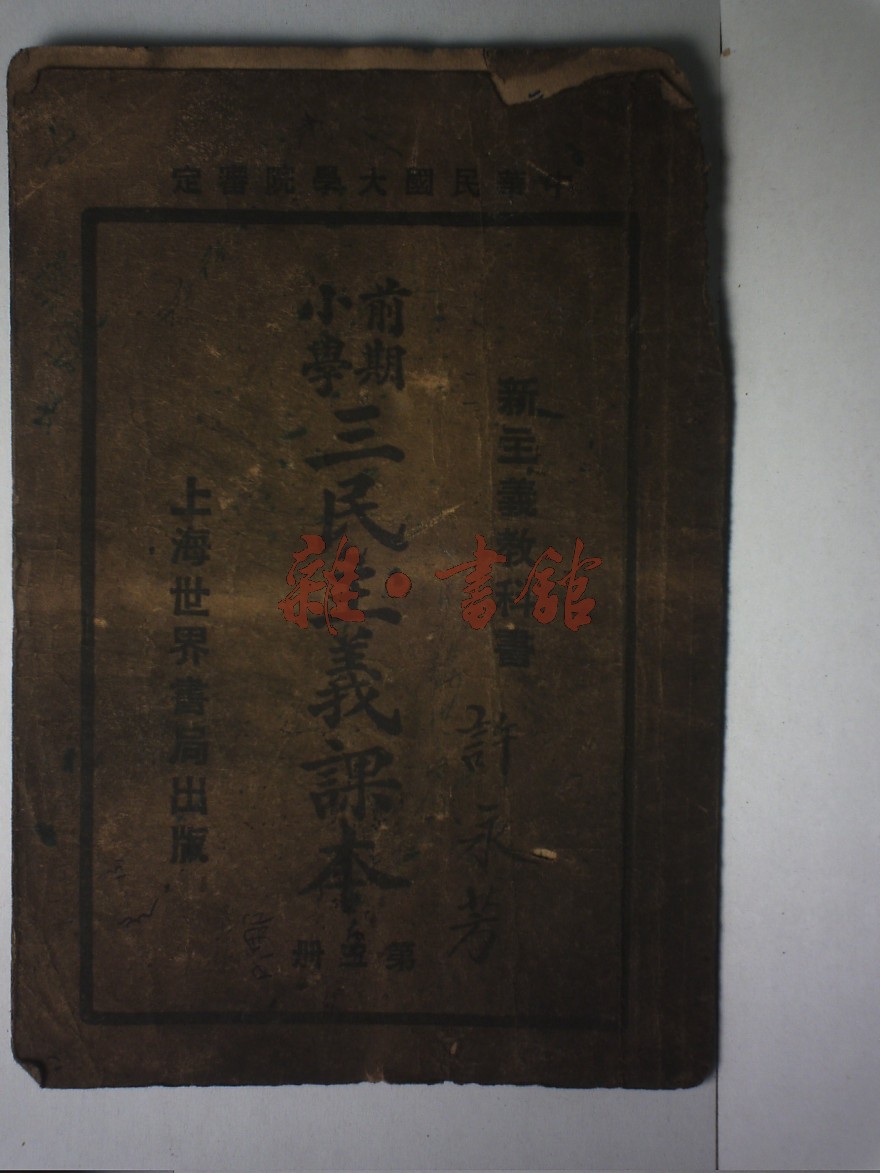 中華民國大學院審定
新主義教科書
前期
小學
三民主義課本
第三册
上海世界書局出版
許永芳
雜·書館